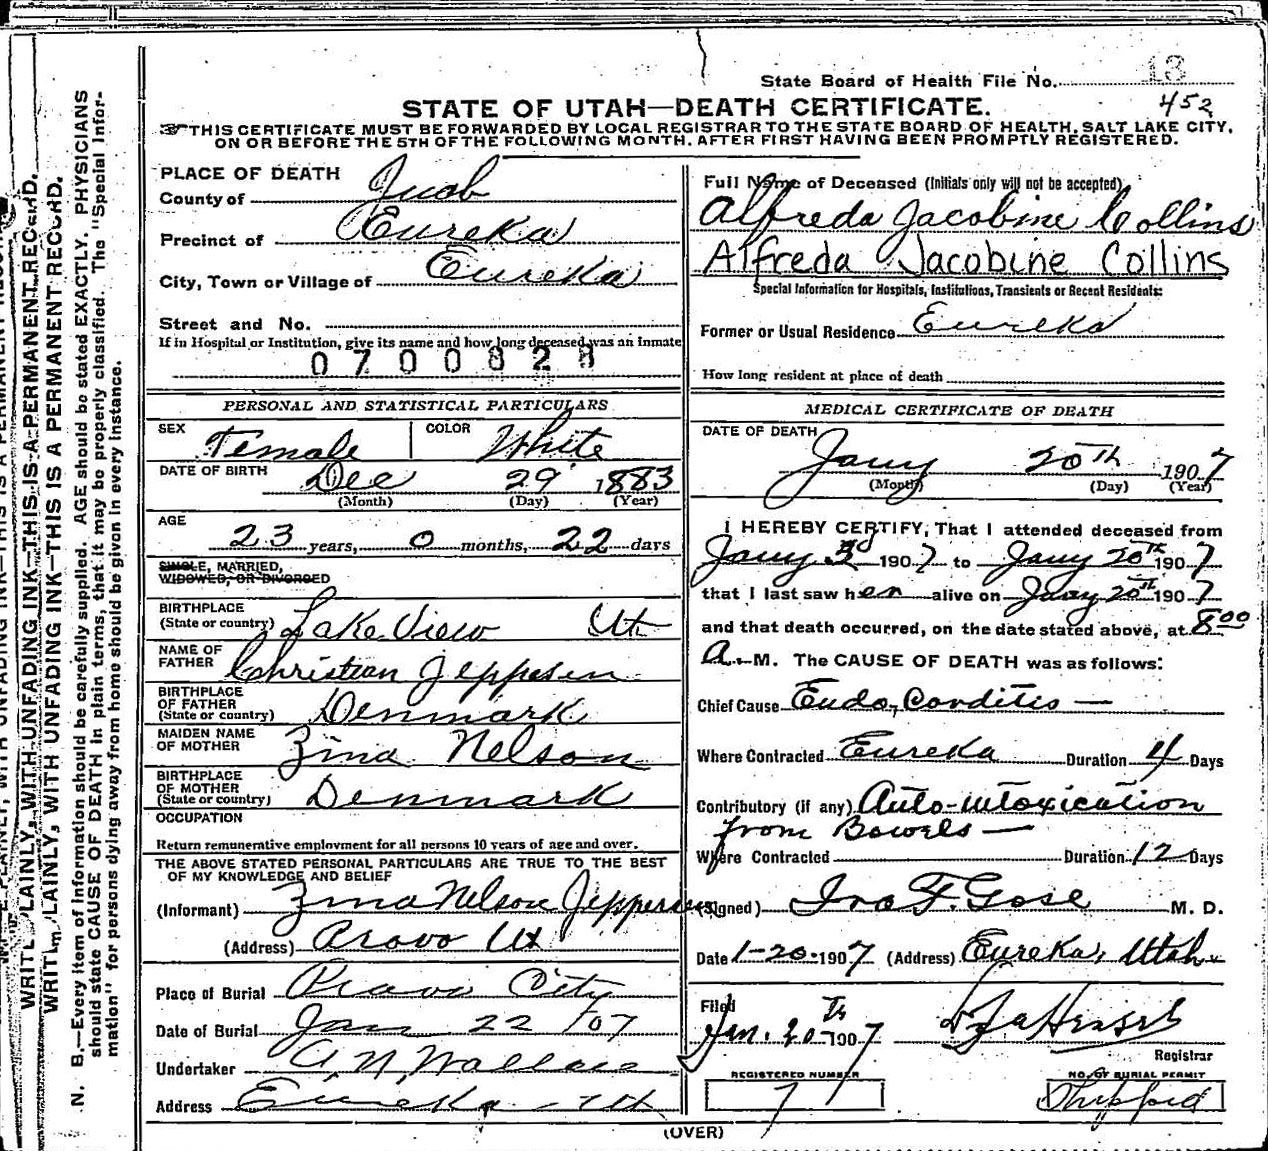 State Board of Health File No. 13
452
STATE OF UTAH—DEATH CERTIFICATE.
THIS CERTIFICATE MUST BE FORWARDED BY LOCAL REGISTRAR TO THE STATE BOARD OF HEALTH, SALT LAKE CITY,
ON OR BEFORE THE 5TH OF THE FOLLOWING MONTH, AFTER FIRST HAVING BEEN PROMPTLY REGISTERED.
PLACE OF DEATH
County of Juab
Precinct of Eureka
City, Town or Village of Eureka
Street and No.
If in Hospital or Institution, give its name and how long deceased was an inmate
0700828
PERSONAL AND STATISTICAL PARTICULARS
SEX Female COLOR White
DATE OF BIRTH Dec 29 1883
(Month) (Day) (Year)
AGE
23 years, 0 months, 22 days
SINGLE, MARRIED,
WIDOWED, OR DIVORCED
BIRTHPLACE
(State or country) Lake View Ut
NAME OF
FATHER Christian Jeppesen
BIRTHPLACE
OF FATHER
(State or country) Denmark
MAIDEN NAME
OF MOTHER Zina Nelson
BIRTHPLACE
OF MOTHER
(State or country) Denmark
OCCUPATION
Return remunerative employment for all persons 10 years of age and over.
THE ABOVE STATED PERSONAL PARTICULARS ARE TRUE TO THE BEST
OF MY KNOWLEDGE AND BELIEF
(Informant) Zina Nelson Jeppersen
(Address) Provo Ut
Place of Burial Provo City
Date of Burial Jan 22 /07
Undertaker A. N. Wallace
Address Eureka - Ut
Full Name of Deceased (Initials only will not be accepted)
Alfreda Jacobine Collins
Alfreda Jacobine Collins
Special Information for Hospitals, Institutions, Transients or Recent Residents:
Former or Usual Residence Eureka
How long resident at place of death
MEDICAL CERTIFICATE OF DEATH
DATE OF DEATH
Jany 20th 1907
(Month) (Day) (Year)
I HEREBY CERTIFY, That I attended deceased from
Jany 3d 1907 to Jany 20th 1907
that I last saw her alive on Jany 20th 1907
and that death occurred, on the date stated above, at 8 00
A. M. The CAUSE OF DEATH was as follows:
Chief Cause Endo-Carditis —
Where Contracted Eureka Duration 4 Days
Contributory (if any) Auto-intoxication
from Bowels —
Where Contracted Duration 12 Days
(Signed) Ira F. Gose M. D.
Date 1-20-1907 (Address) Eureka, Utah
Filed
Jan. 20th 1907
Registrar
REGISTERED NUMBER
7
NO. OF BURIAL PERMIT
Shipped
(OVER)
WRITE PLAINLY, WITH UNFADING INK—THIS IS A PERMANENT RECORD.
WRITE PLAINLY, WITH UNFADING INK—THIS IS A PERMANENT RECORD.
N. B.—Every item of information should be carefully supplied. AGE should be stated EXACTLY. PHYSICIANS
should state CAUSE OF DEATH in plain terms, that it may be properly classified. The "Special Infor-
mation" for persons dying away from home should be given in every instance.